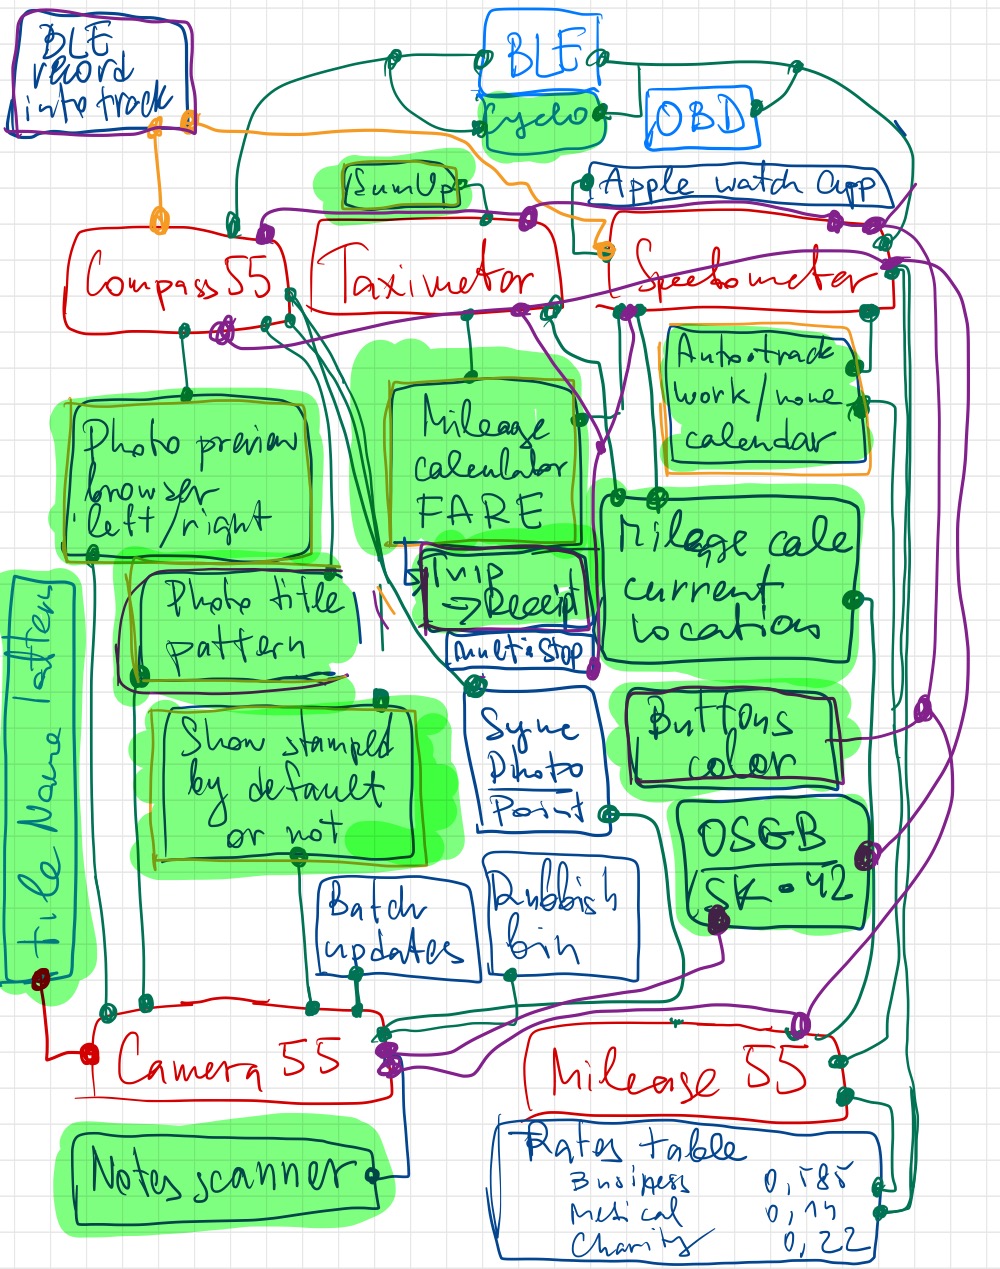 BLE
record
into track
BLE
Cyclo
OBD
SumUp
Apple watch app
Compass 55
Taximeter
Speedometer
Photo preview
browser
left/right
Mileage
calculator
FARE
Autotrack
work/none
calendar
Milage calc
current
location
Trip
→ Receipt
multistop
Photo title
pattern
File Name Pattern
Show stamped
by default
or not
Sync
Photo
Point
Buttons
color
OSGB
SK-42
Batch
updates
Rubbish
bin
Camera 55
Mileage 55
Notes scanner
Rates table
Business 0,585
Medical 0,14
Charity 0,22